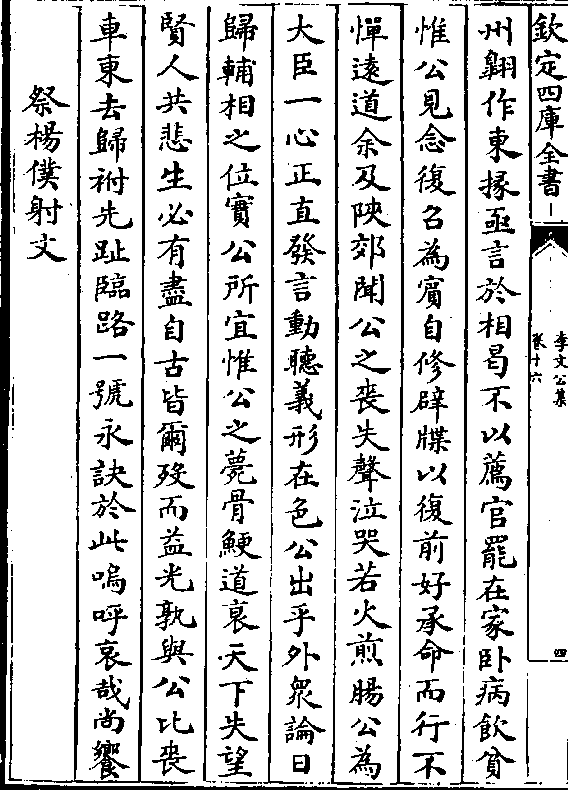 欽定四庫全書
李文公集
卷十六
四
州翺作東掾亟言於相曷不以薦官罷在家卧病飲貧
惟公見念復召為賓自修辟牒以復前好承命而行不
憚遠道余及陜郊聞公之喪失聲泣哭若火煎腸公為
大臣一心正直發言動聽義形在色公出乎外衆論日
歸輔相之位實公所宜惟公之薨骨鯁道衰天下失望
賢人共悲生必有盡自古皆爾殁而益光孰與公比喪
車東去歸祔先趾臨路一號永訣於此嗚呼哀哉尚饗
祭楊僕射文